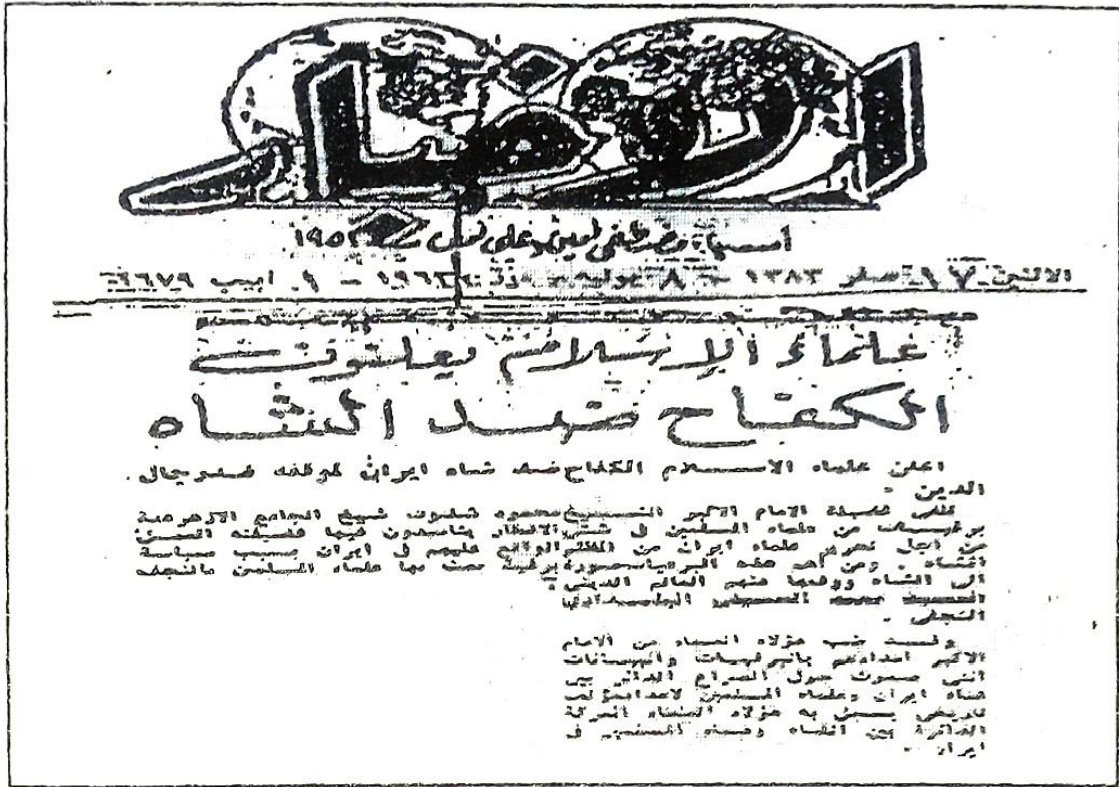 الأخبار
أسسها مصطفى أمين وعلي أمين سنة ١٩٥٢
الاثنين ١٧ صفر ١٣٨٣ - ٨ يوليه ١٩٦٣ - ١ أبيب ١٦٧٩
علماء الإسلام يعلنون
الكفاح ضد الشاه
اعلن علماء الاسلام الكفاح ضد شاه ايران لموقفه ضد رجال
الدين .
تلقى فضيلة الامام الاكبر الشيخ محمود شلتوت شيخ الجامع الازهر
برقيات من علماء المسلمين في شتى الاقطار يناشدون فيها فضيلته
من اجل تحرير علماء ايران من الواقع عليهم في ايران بسبب سياسة
الشاه . ومن اهم هذه البرقيات صورة برقية بعث بها علماء المسلمين بالنجف
الى الشاه ووقعها منهم العالم الديني
السيد محمد الحسيني البغدادي
النجفي .
وقد طلب هؤلاء العلماء من الامام
الاكبر امدادهم بالبرقيات والبيانات
التي صدرت حول الصراع الدائر بين
شاه ايران وعلماء المسلمين لاعداد مؤلف
تاريخي يسجل به هؤلاء العلماء المعركة
الدائرة بين الشاه وعلماء المسلمين في
ايران .